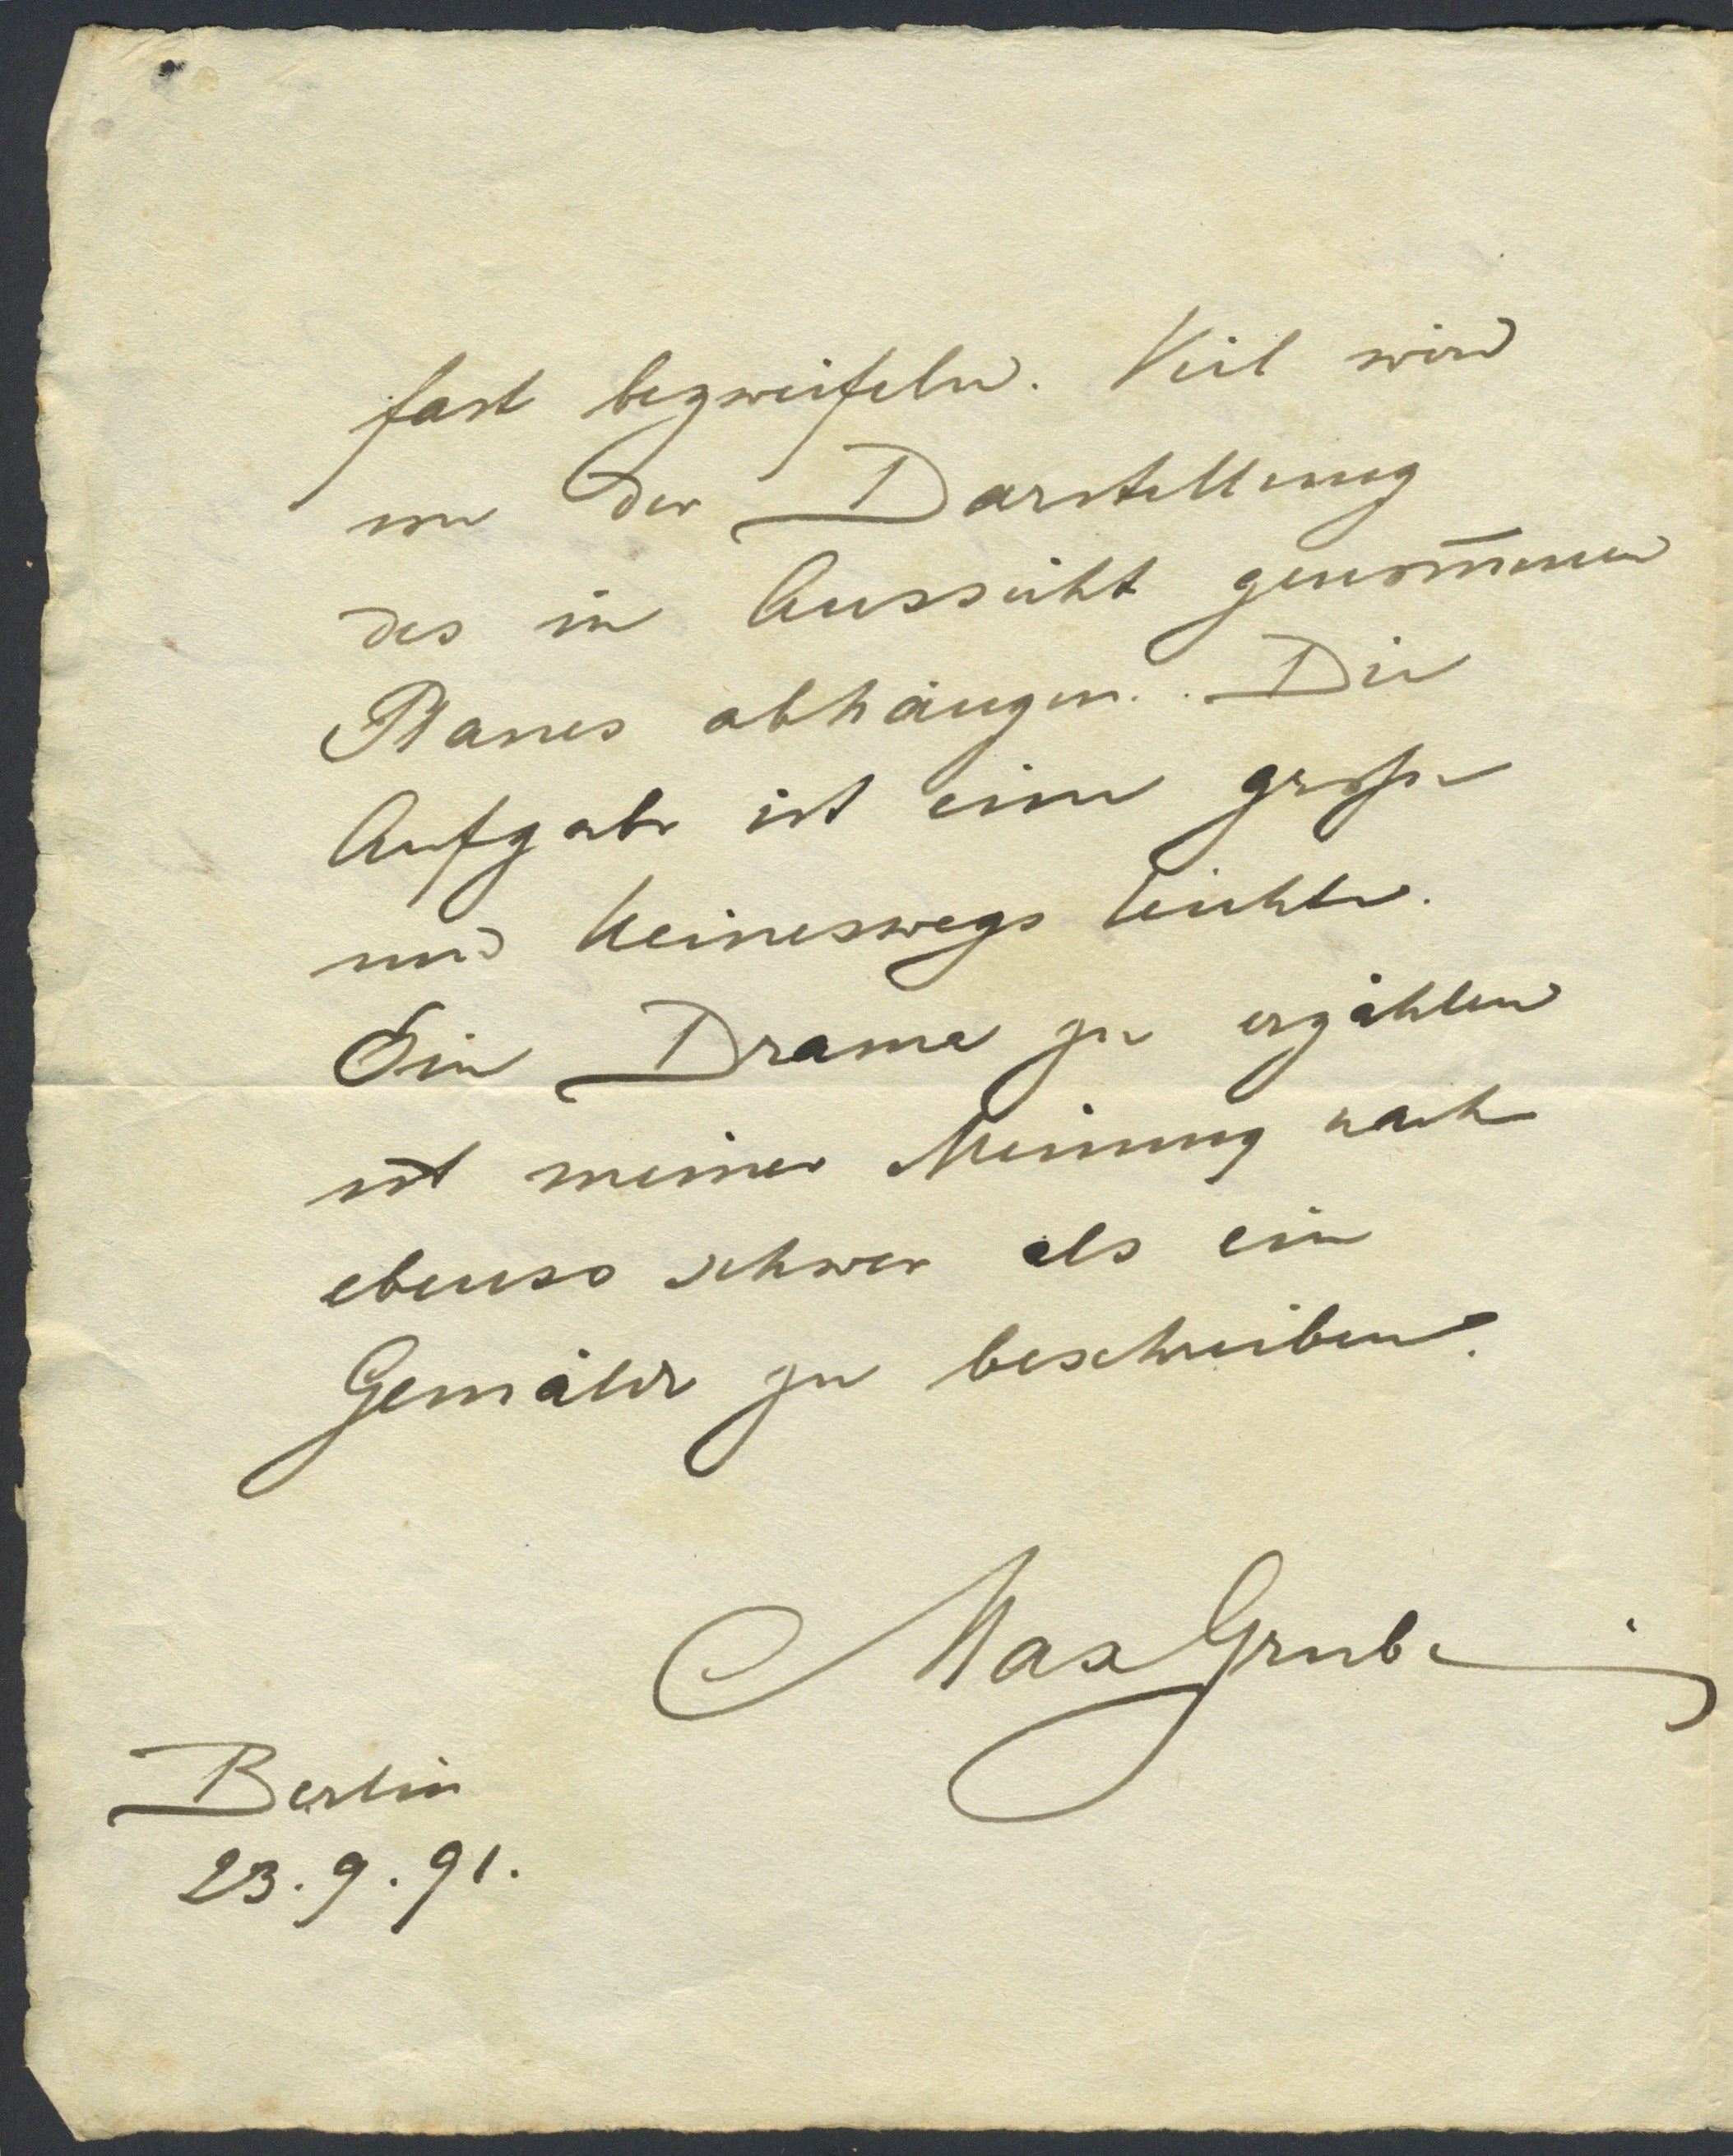 fast bezweifeln. Viel wird
von der Darstellung
des in Aussicht genom̅enen
Planes abhängen. Die
Aufgabe ist eine große
und keineswegs leichte.
Ein Drama zu erzählen
ist meiner Meinung nach
ebenso schwer als ein
Gemälde zu beschreiben.
Max Grube
Berlin
23.9.91.